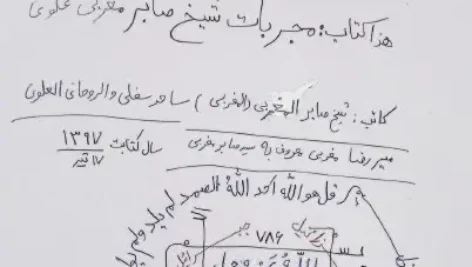 هذا کتاب: مجربات شیخ صابر مغربی علوی
کاتب: شیخ صابر المغربی (المغربی) ساحر سفلی والروحانی العلوی
میررضا مغربی معروف به سید صابر مغربی سال کتابت ۱۳۹۷
۱۷ تیر
قل هو الله احد الله الصمد لم یلد ولم یولد
۷۸۶